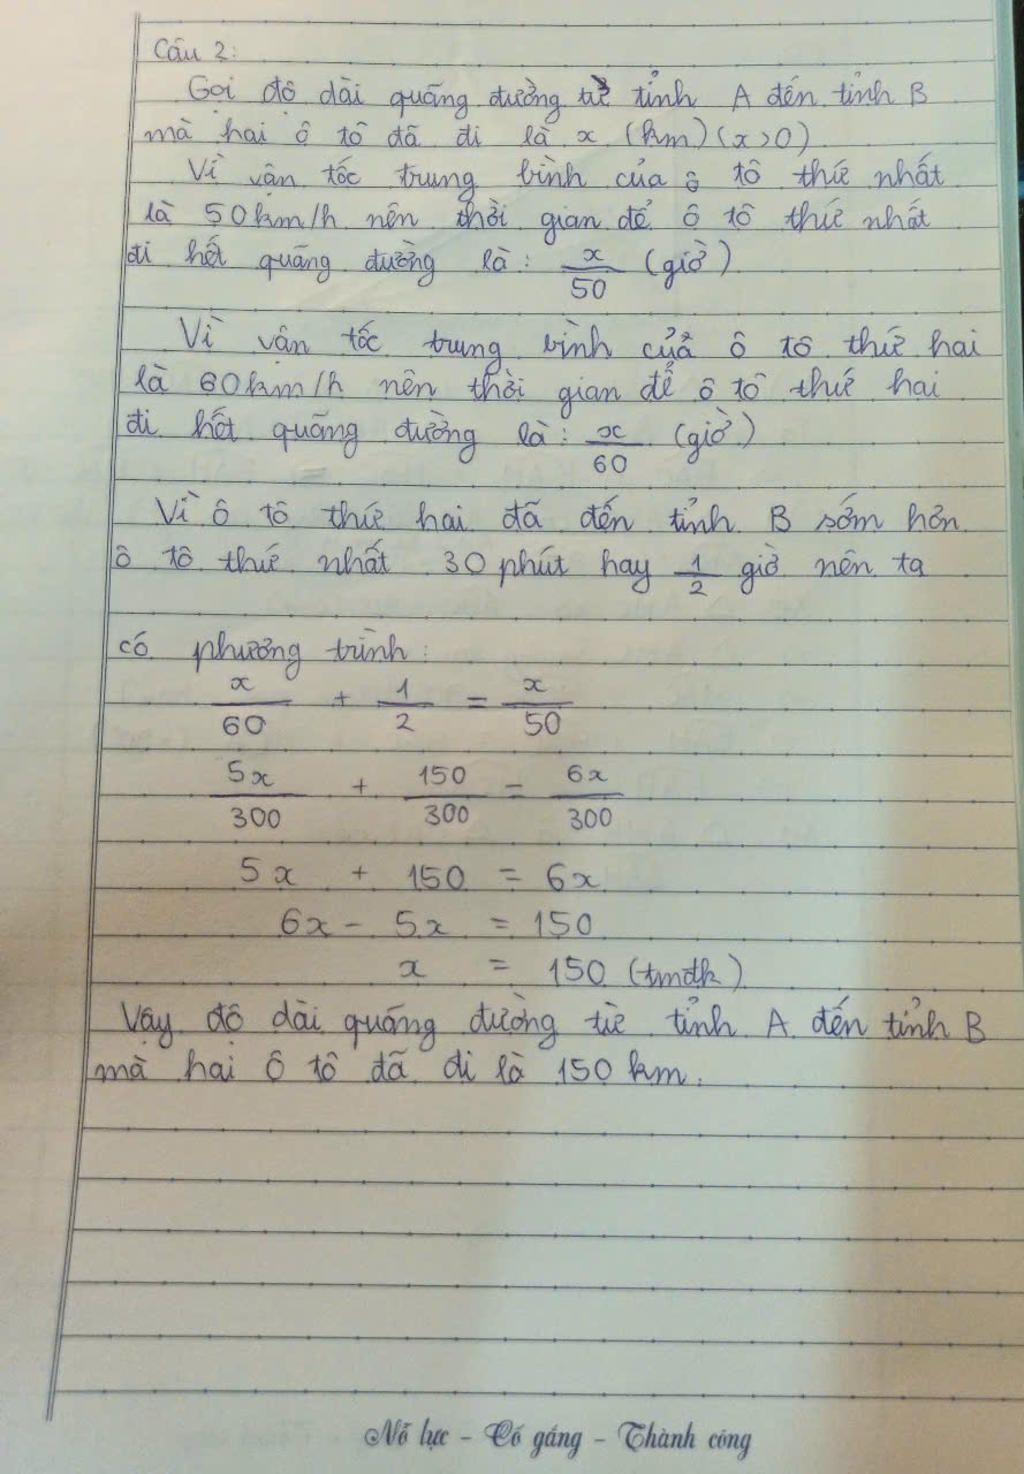 Câu 2:
Gọi độ dài quãng đường từ tỉnh A đến tỉnh B
mà hai ô tô đã đi là x (km) (x>0)
Vì vận tốc trung bình của ô tô thứ nhất
là 50km/h nên thời gian để ô tô thứ nhất
đi hết quãng đường là: x/50 (giờ)
Vì vận tốc trung bình của ô tô thứ hai
là 60km/h nên thời gian để ô tô thứ hai
đi hết quãng đường là: x/60 (giờ)
Vì ô tô thứ hai đã đến tỉnh B sớm hơn
ô tô thứ nhất 30 phút hay 1/2 giờ nên ta
có phương trình:
x/60 + 1/2 = x/50
5x/300 + 150/300 = 6x/300
5x + 150 = 6x
6x - 5x = 150
x = 150 (tmđk)
Vậy độ dài quãng đường từ tỉnh A đến tỉnh B
mà hai ô tô đã đi là 150 km.
Nỗ lực - Cố gắng - Thành công